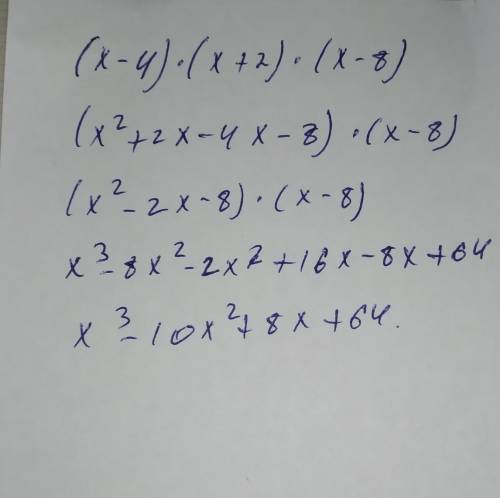 (x-4)·(x+2)·(x-8)
(x²+2x-4x-8)·(x-8)
(x²-2x-8)·(x-8)
x³-8x²-2x²+16x-8x+64
x³-10x²+8x+64.